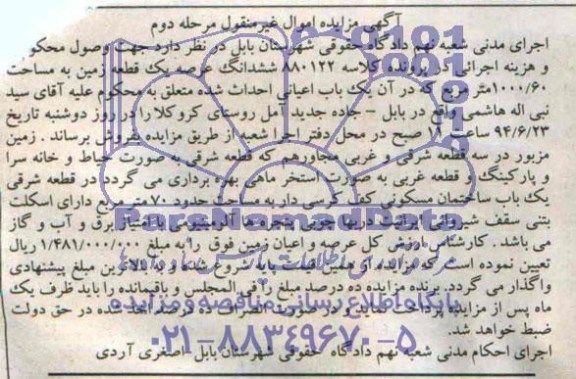 آگهی مزایده اموال غیرمنقول مرحله دوم
اجرای مدنی شعبه نهم دادگاه حقوقی شهرستان بابل در نظر دارد جهت وصول محکوم
و هزینه اجرائی در پرونده کلاسه ۸۸۰۱۲۲ ششدانگ عرصه یک قطعه زمین به مساحت
۱۰۰۰/۶۰متر مربع که در آن یک باب اعیانی احداث شده متعلق به محکوم علیه آقای سید
نبی اله هاشمی واقع در بابل - جاده جدید آمل روستای کروکلا را در روز دوشنبه تاریخ
۹۴/۶/۲۳ ساعت صبح در محل دفتر اجرا شعبه از طریق مزایده بفروش برساند . زمین
مزبور در سه قطعه شرقی و غربی مجاورهم که قطعه شرقی به صورت حیاط و خانه سرا
و پارکینگ و قطعه غربی به صورت استخر ماهی بهره برداری می گردد در قطعه شرقی
یک باب ساختمان مسکونی کف کرسی دار به مساحت حدود ۷۰متر مربع دارای اسکلت
بتنی سقف شیروانی ایرانیت دربها چوبی پنجره ها آلومینیومی با امتیاز برق و آب و گاز
می باشد . کارشناس ارزش کل عرصه و اعیان زمین فوق را به مبلغ ۱/۴۸۱/۰۰۰/۰۰۰ ریال
تعیین نموده است که مزایده از همین قیمت پایه شروع شده و به بالاترین مبلغ پیشنهادی
واگذار می گردد. برنده مزایده ده درصد مبلغ را فی المجلس و باقیمانده را باید ظرف یک
ماه پس از مزایده پرداخت نماید و در صورت انصراف ده درصد اخذ شده در حق دولت
ضبط خواهد شد.
اجرای احکام مدنی شعبه نهم دادگاه حقوقی شهرستان بابل -اصغری آردی
ParsNamadData
پایگاه اطلاع رسانی مناقصه و مزایده
۰۲۱-۸۸۳۴۹۶۷۰-۵